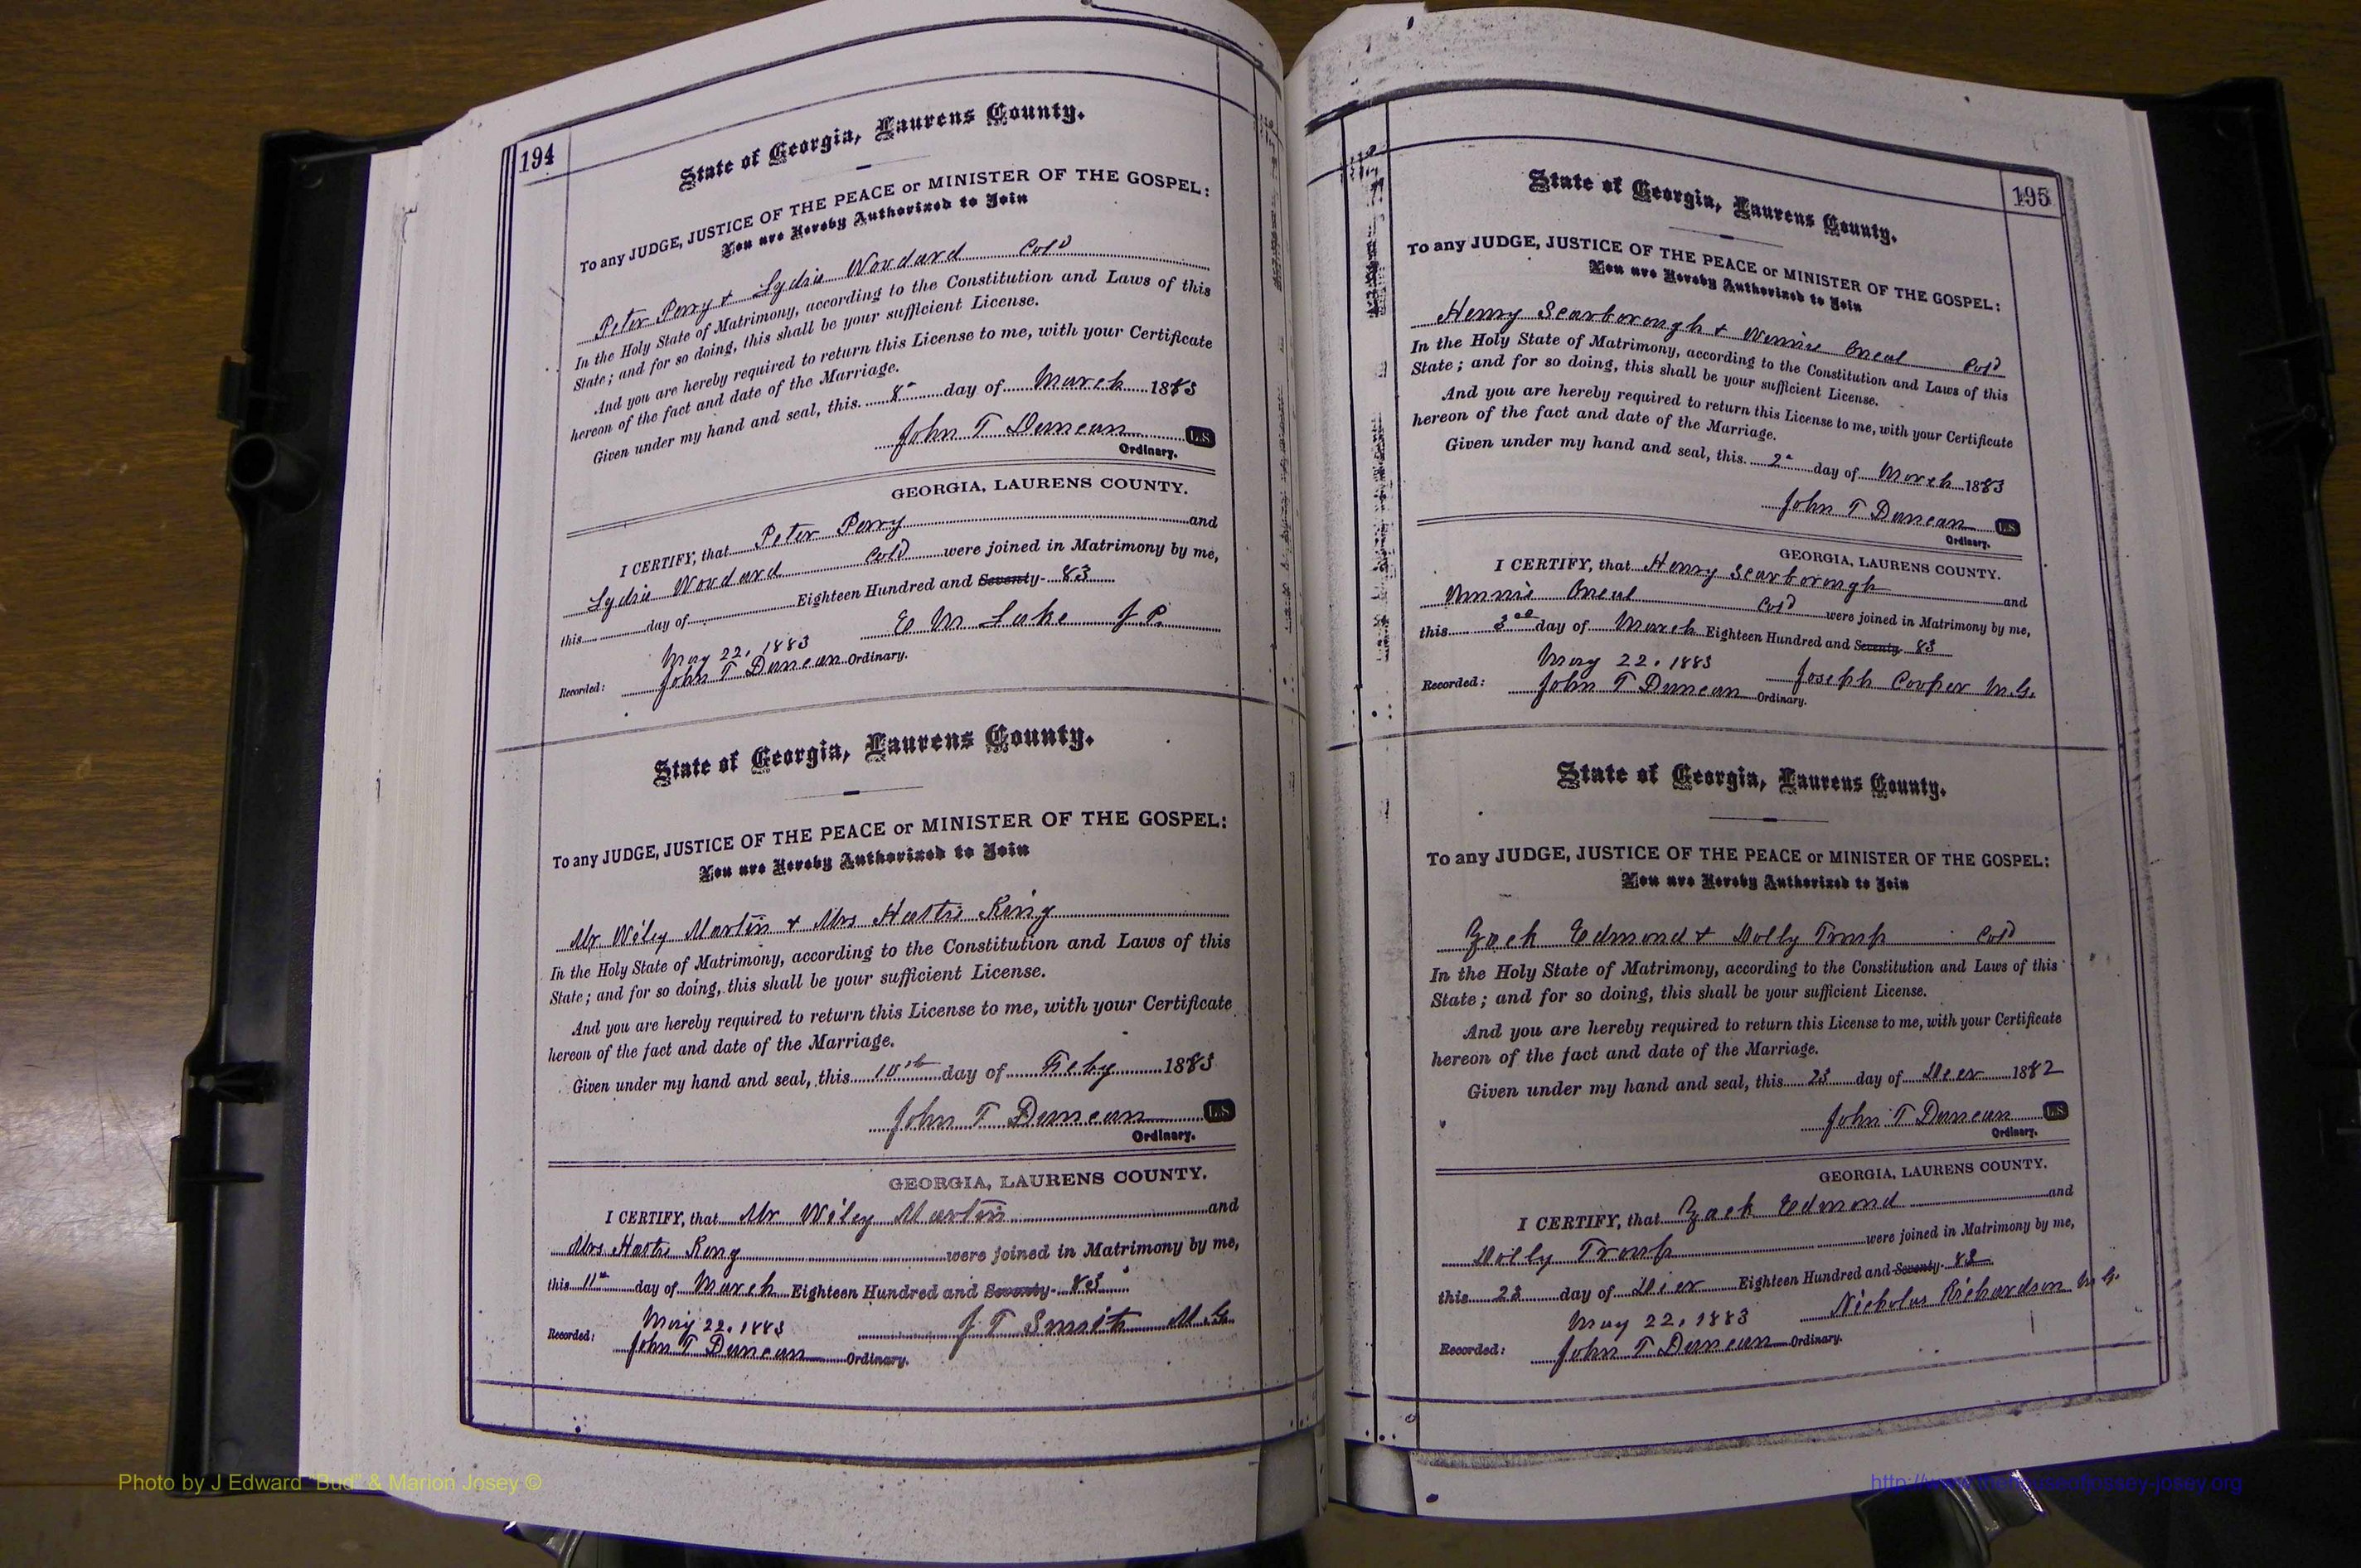 194
State of Georgia, Laurens County.
To any JUDGE, JUSTICE OF THE PEACE or MINISTER OF THE GOSPEL:
You are Hereby Authorized to Join
Peter Perry & Lydia Woodard Cold
In the Holy State of Matrimony, according to the Constitution and Laws of this
State; and for so doing, this shall be your sufficient License.
And you are hereby required to return this License to me, with your Certificate
hereon of the fact and date of the Marriage.
Given under my hand and seal, this 8 day of March 1883
John T Duncan L.S.
Ordinary.
GEORGIA, LAURENS COUNTY.
I CERTIFY, that Peter Perry and
Lydia Woodard Cold were joined in Matrimony by me,
this day of Eighteen Hundred and Seventy- 83
E M Lake J.P.
May 22, 1883
Recorded: John T Duncan Ordinary.
State of Georgia, Laurens County.
To any JUDGE, JUSTICE OF THE PEACE or MINISTER OF THE GOSPEL:
You are Hereby Authorized to Join
Mr Wiley Martin & Mrs Hattie King
In the Holy State of Matrimony, according to the Constitution and Laws of this
State; and for so doing, this shall be your sufficient License.
And you are hereby required to return this License to me, with your Certificate
hereon of the fact and date of the Marriage.
Given under my hand and seal, this 10th day of Feby 1883
John T Duncan L.S.
Ordinary.
GEORGIA, LAURENS COUNTY.
I CERTIFY, that Mr Wiley Martin and
Mrs Hattie King were joined in Matrimony by me,
this 11th day of March Eighteen Hundred and Seventy- 83
J T Smith M.G.
May 22, 1883
Recorded: John T Duncan Ordinary.
195
State of Georgia, Laurens County.
To any JUDGE, JUSTICE OF THE PEACE or MINISTER OF THE GOSPEL:
You are Hereby Authorized to Join
Henry Scarborough & Winnie Oneal Cold
In the Holy State of Matrimony, according to the Constitution and Laws of this
State; and for so doing, this shall be your sufficient License.
And you are hereby required to return this License to me, with your Certificate
hereon of the fact and date of the Marriage.
Given under my hand and seal, this 2 day of March 1883
John T Duncan L.S.
Ordinary.
GEORGIA, LAURENS COUNTY.
I CERTIFY, that Henry Scarborough and
Winnie Oneal Cold were joined in Matrimony by me,
this 3rd day of March Eighteen Hundred and Seventy 83
Joseph Cooper M.G.
May 22, 1883
Recorded: John T Duncan Ordinary.
State of Georgia, Laurens County.
To any JUDGE, JUSTICE OF THE PEACE or MINISTER OF THE GOSPEL:
You are Hereby Authorized to Join
Zack Edmond & Dolly Troup Cold
In the Holy State of Matrimony, according to the Constitution and Laws of this
State; and for so doing, this shall be your sufficient License.
And you are hereby required to return this License to me, with your Certificate
hereon of the fact and date of the Marriage.
Given under my hand and seal, this 23 day of Decr 1882
John T Duncan L.S.
Ordinary.
GEORGIA, LAURENS COUNTY.
I CERTIFY, that Zack Edmond and
Dolly Troup were joined in Matrimony by me,
this 23 day of Decr Eighteen Hundred and Seventy- 82
Nicholus Richardson M.G.
May 22, 1883
Recorded: John T Duncan Ordinary.
Photo by J Edward "Bud" & Marion Josey ©